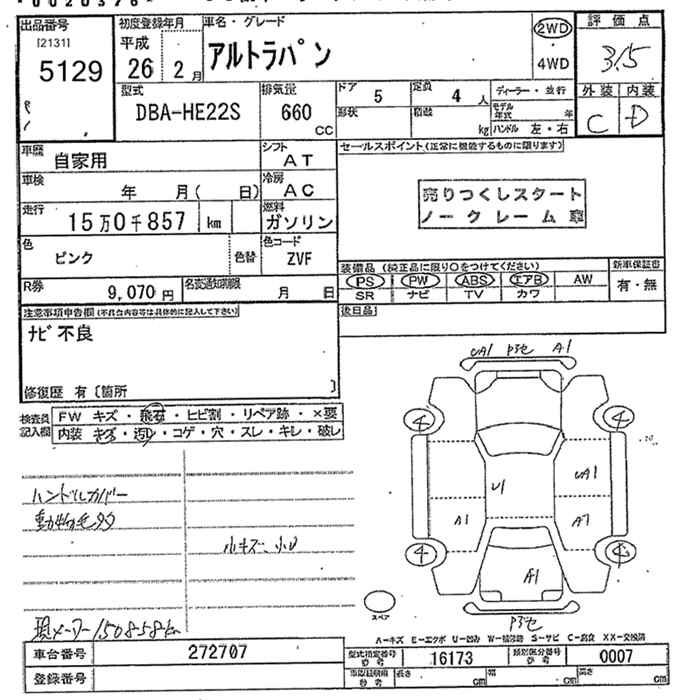 出品番号
[2131]
5129
初度登録年月
平成
26 2月
車名・グレード
アルトラパン
2WD
・
4WD
評価点
3.5
外装 内装
C D
型式
DBA-HE22S
排気量
660
CC
ドア
5
定員
4 人
形状
積載
kg
ディーラー・並行
モデル年式 年
ハンドル 左・右
車歴
自家用
シフト
AT
車検
年 月( 日)
冷房
AC
走行
15万0千857 km
燃料
ガソリン
色
ピンク
色替
色コード
ZVF
R券
9,070円
名変通知期限
月 日
セールスポイント(正常に機能するものに限ります)
売りつくしスタート
ノークレーム車
装備品(純正品に限り○をつけてください)
PS PW ABS エアB AW
SR ナビ TV カワ
新車保証書
有・無
後日品
注意事項申告欄(不具合内容等は具体的に記入して下さい)
ナビ不良
修復歴 有〔箇所 〕
検査員記入欄
FW キズ・飛石・ヒビ割・リペア跡・×要
内装 キズ・汚レ・コゲ・穴・スレ・キレ・破レ
ハンドルカバー
動物毛タ
小キズ、小U
現メーター150858km
UA1 P3セ A1
4 4
UA1
U1
A1 A7
4 4
A1
スペア
P3セ
A-キズ E-エクボ U-凹み W-補修跡 S-サビ C-腐食 XX-交換済
車台番号
272707
型式指定番号
16173
類別区分番号
0007
登録番号
長さ cm
幅 cm
高さ cm